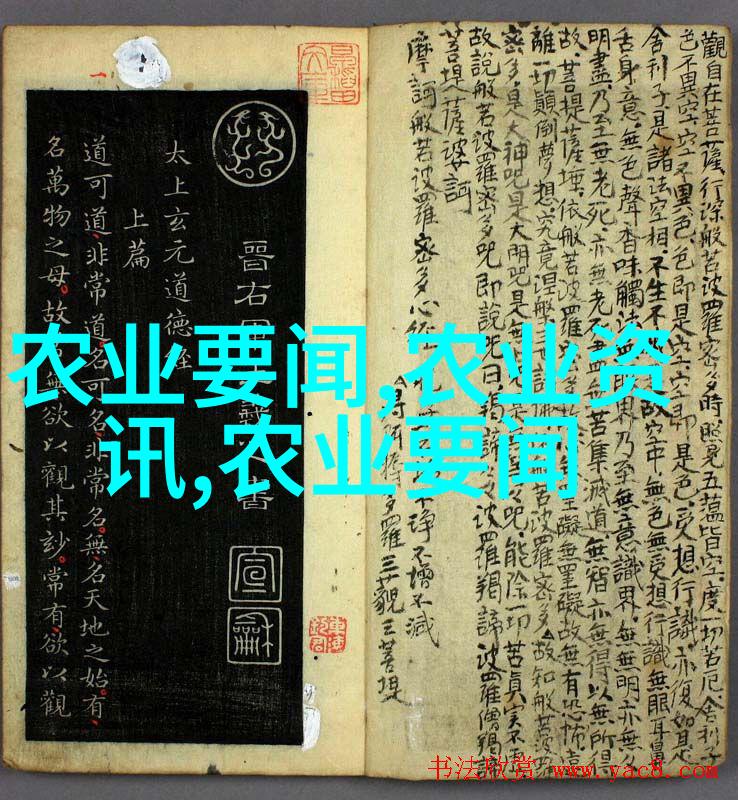 农业要闻,农业资
讯,农业要闻
觀自在菩薩行深般若波羅蜜多時照見五蘊皆空度一切苦厄舍利子
色不異空空不異色色即是空空即是色受想行識亦復如是
舍利子是諸法空相不生不滅故空中無色無受想行識無眼耳鼻
舌身意無色聲香味觸法無眼界乃至無意識界無無明亦無
明盡乃至無老死亦無老盡無苦集滅道無智亦無得以無所得
故菩提薩埵依般若波羅礙無罣礙故無有恐怖遠
離一切顛倒夢想究竟涅槃三世諸佛般若波羅蜜多故知般若波
密多是大神咒是大明咒是無咒能除一切苦真實不虛
故說般若波羅密多咒即說咒曰揭諦波羅揭諦波羅僧揭諦
菩提薩婆訶
摩訶般若波羅密多心經
淨不增不減
得阿耨多羅三藐三菩提
晉右軍書
宣和
太上玄元道德經
上篇
道可道非常道名可名非常名無名天地之始有
名萬物之母故無欲以觀其妙常有欲以觀
书法欣赏 www.yac8.com